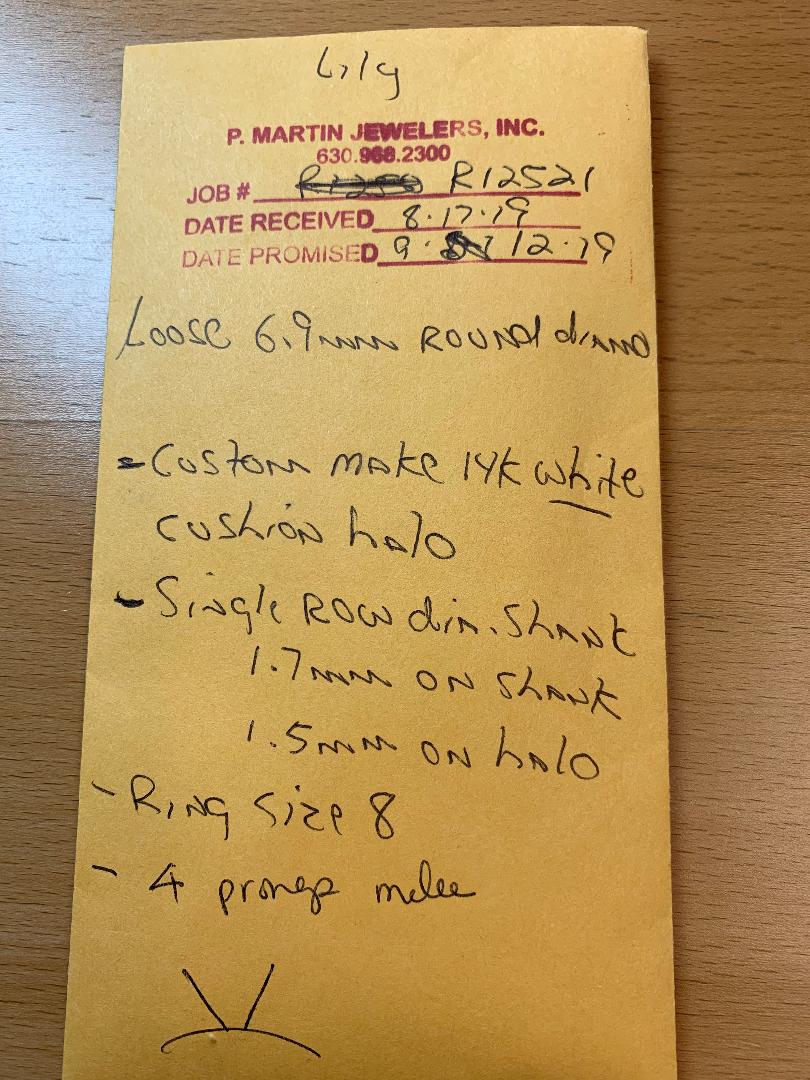 Lily
P. MARTIN JEWELERS, INC.
630.968.2300
JOB # R12521
DATE RECEIVED 8.17.19
DATE PROMISED 9. 12.19
Loose 6.9mm ROUND
- Custom make 14k white
cushion halo
- Single ROW dia. Shank
1.7mm ON Shank
1.5mm ON halo
- Ring Size 8
- 4 prongs melee